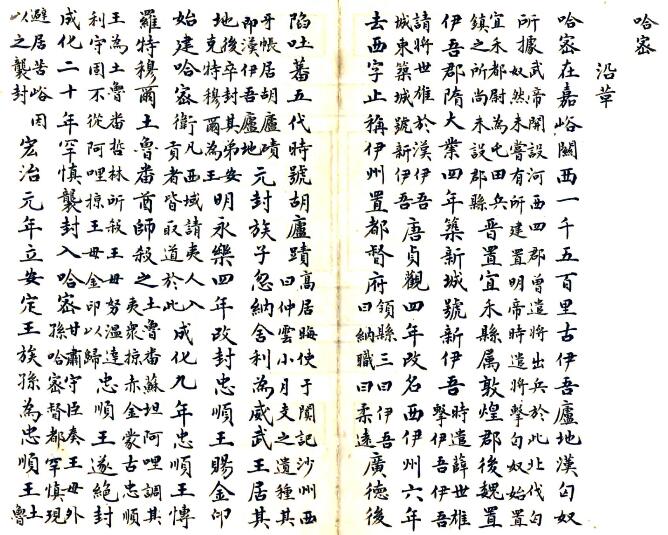 哈密
沿革
哈密在嘉峪關西一千五百里古伊吾廬地漢匈奴
所據武帝開設河西四郡曾遣將出兵於此北伐匈
奴然未嘗有所建置明帝時遣將擊匈奴始置
宜禾都尉為屯田兵
鎮之所尚未設郡縣晋置宜禾縣属敦煌郡後魏置
伊吾郡隋大業四年築新城號新伊吾時遣薛世雄
擊伊吾伊吾
請將世雄於漢伊吾
城東築城號新伊吾唐貞觀四年改名西伊州六年
去西字止稱伊州置都督府領縣三曰伊吾
曰納職曰柔遠廣德後
陷吐蕃五代時號胡廬蹟高居晦使于闐記沙州西
曰仲雲小月支之遺種其
牙帳居胡廬磧
即漢廬地元封族子忽納舍利為威武王居其
地後卒封其弟安
克特穆爾為王明永樂四年改封忠順王賜金印
始建哈密衛凡西域請夷人入
貢者皆取道於此成化九年忠順王慱
羅特穆爾土魯番酋師殺之土魯番蘇坦阿哩調其
夷衆掠赤金蒙古忠順
王為土魯番哲林所殺王母努溫達
利守国不從阿哩掠王母金印以歸忠順王遂絕封
成化二十年罕慎襲封入哈密甘肅守臣奏王母外
孫哈密督都罕慎現
避居苦峪因
以之襲封宏治元年立安定王族孫為忠順王土
魯